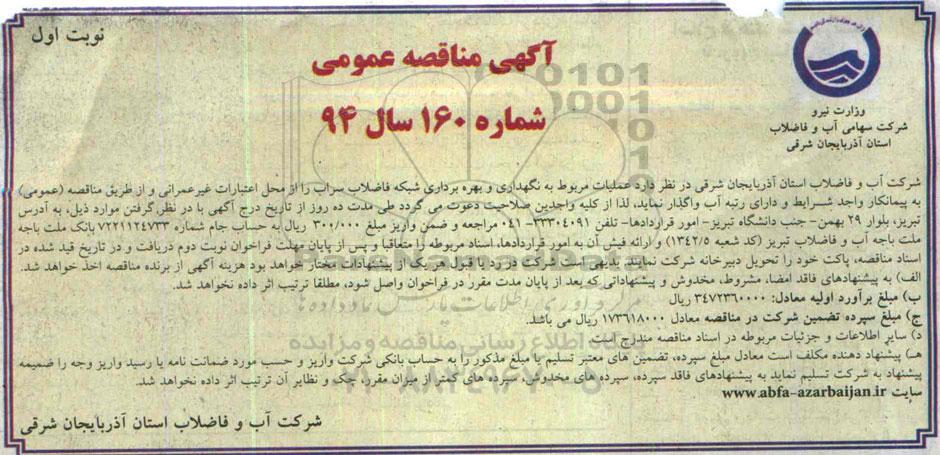 نوبت اول
آگهی مناقصه عمومی
شماره ۱۶۰ سال ۹۴
وزارت نیرو
شرکت سهامی آب و فاضلاب
استان آذربایجان شرقی
شرکت آب و فاضلاب استان آذربایجان شرقی در نظر دارد عملیات مربوط به نگهداری و بهره برداری شبکه فاضلاب سراب را از محل اعتبارات غیرعمرانی و از طریق مناقصه (عمومی)
به پیمانکار واجد شرایط و دارای رتبه آب واگذار نماید، لذا از کلیه واجدین صلاحیت دعوت می گردد طی مدت ده روز از تاریخ درج آگهی با در نظر گرفتن موارد ذیل، به آدرس
تبریز، بلوار ۲۹ بهمن- جنب دانشگاه تبریز- امور قراردادها- تلفن ۳۳۳۰۴۰۹۱-۰۴۱ مراجعه و ضمن واریز مبلغ ۳۰۰/۰۰۰ ریال به حساب جام شماره ۷۲۲۱۱۲۴۷۳۳ بانک ملت باجه
ملت باجه آب و فاضلاب تبریز (کد شعبه ۱۳۴۲/۵) و ارائه فیش آن به امور قراردادها، اسناد مربوطه را متعاقبا و پس از پایان مهلت فراخوان نوبت دوم دریافت و در تاریخ قید شده در
اسناد مناقصه، پاکت خود را تحویل دبیرخانه شرکت نمایند. بدیهی است شرکت در رد یا قبول هر یک از پیشنهادات مختار خواهد بود هزینه آگهی از برنده مناقصه اخذ خواهد شد.
الف) به پیشنهادهای فاقد امضا، مشروط، مخدوش و پیشنهاداتی که بعد از پایان مدت مقرر در فراخوان واصل شود، مطلقا ترتیب اثر داده نخواهد شد.
ب) مبلغ برآورد اولیه معادل: ۳۴۷۲۳۶۰۰۰۰ ریال
ج) مبلغ سپرده تضمین شرکت در مناقصه معادل ۱۷۳۶۱۸۰۰۰ ریال می باشد.
د) سایر اطلاعات و جزئیات مربوطه در اسناد مناقصه مندرج است.
هـ) پیشنهاد دهنده مکلف است معادل مبلغ سپرده، تضمین های معتبر تسلیم یا مبلغ مذکور را به حساب بانکی شرکت واریز و حسب مورد ضمانت نامه یا رسید واریز وجه را ضمیمه
پیشنهاد به شرکت تسلیم نماید به پیشنهادهای فاقد سپرده، سپرده های مخدوش، سپرده های کمتر از میزان مقرر، چک و نظایر آن ترتیب اثر داده نخواهد شد.
سایت www.abfa-azarbaijan.ir
شرکت آب و فاضلاب استان آذربایجان شرقی